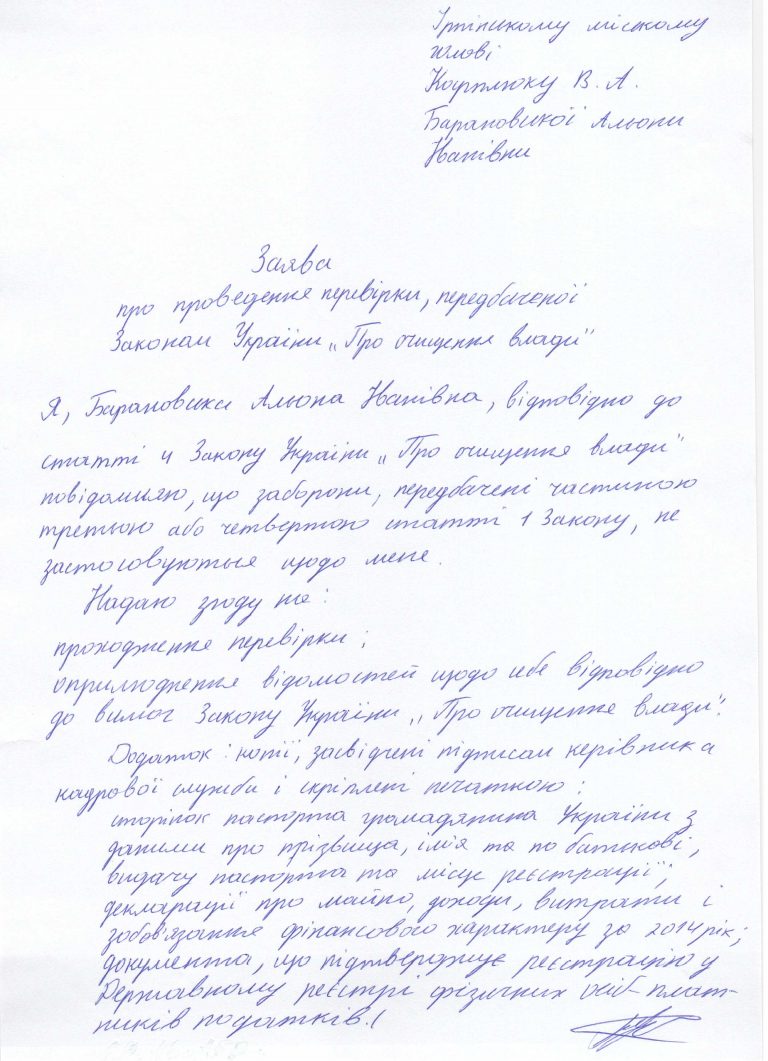 Ірпінському міському
голові
Карплюку В. А.
Барановської Альони
Іванівни
Заява
про проведення перевірки, передбаченої
Законом України „Про очищення влади"
Я, Барановська Альона Іванівна, відповідно до
статті 4 Закону України „Про очищення влади"
повідомляю, що заборони, передбачені частиною
третьою або четвертою статті 1 Закону, не
застосовуються щодо мене.
Надаю згоду на:
проходження перевірки;
оприлюднення відомостей щодо себе відповідно
до вимог Закону України „Про очищення влади".
Додаток: копії, засвідчені підписом керівника
кадрової служби і скріплені печаткою:
сторінок паспорта громадянина України з
даними про прізвище, ім'я та по батькові,
видачу паспорта та місце реєстрації;
декларації про майно, доходи, витрати і
зобов'язання фінансового характеру за 2014 рік;
документа, що підтверджує реєстрацію у
Державному реєстрі фізичних осіб-плат-
ників податків.